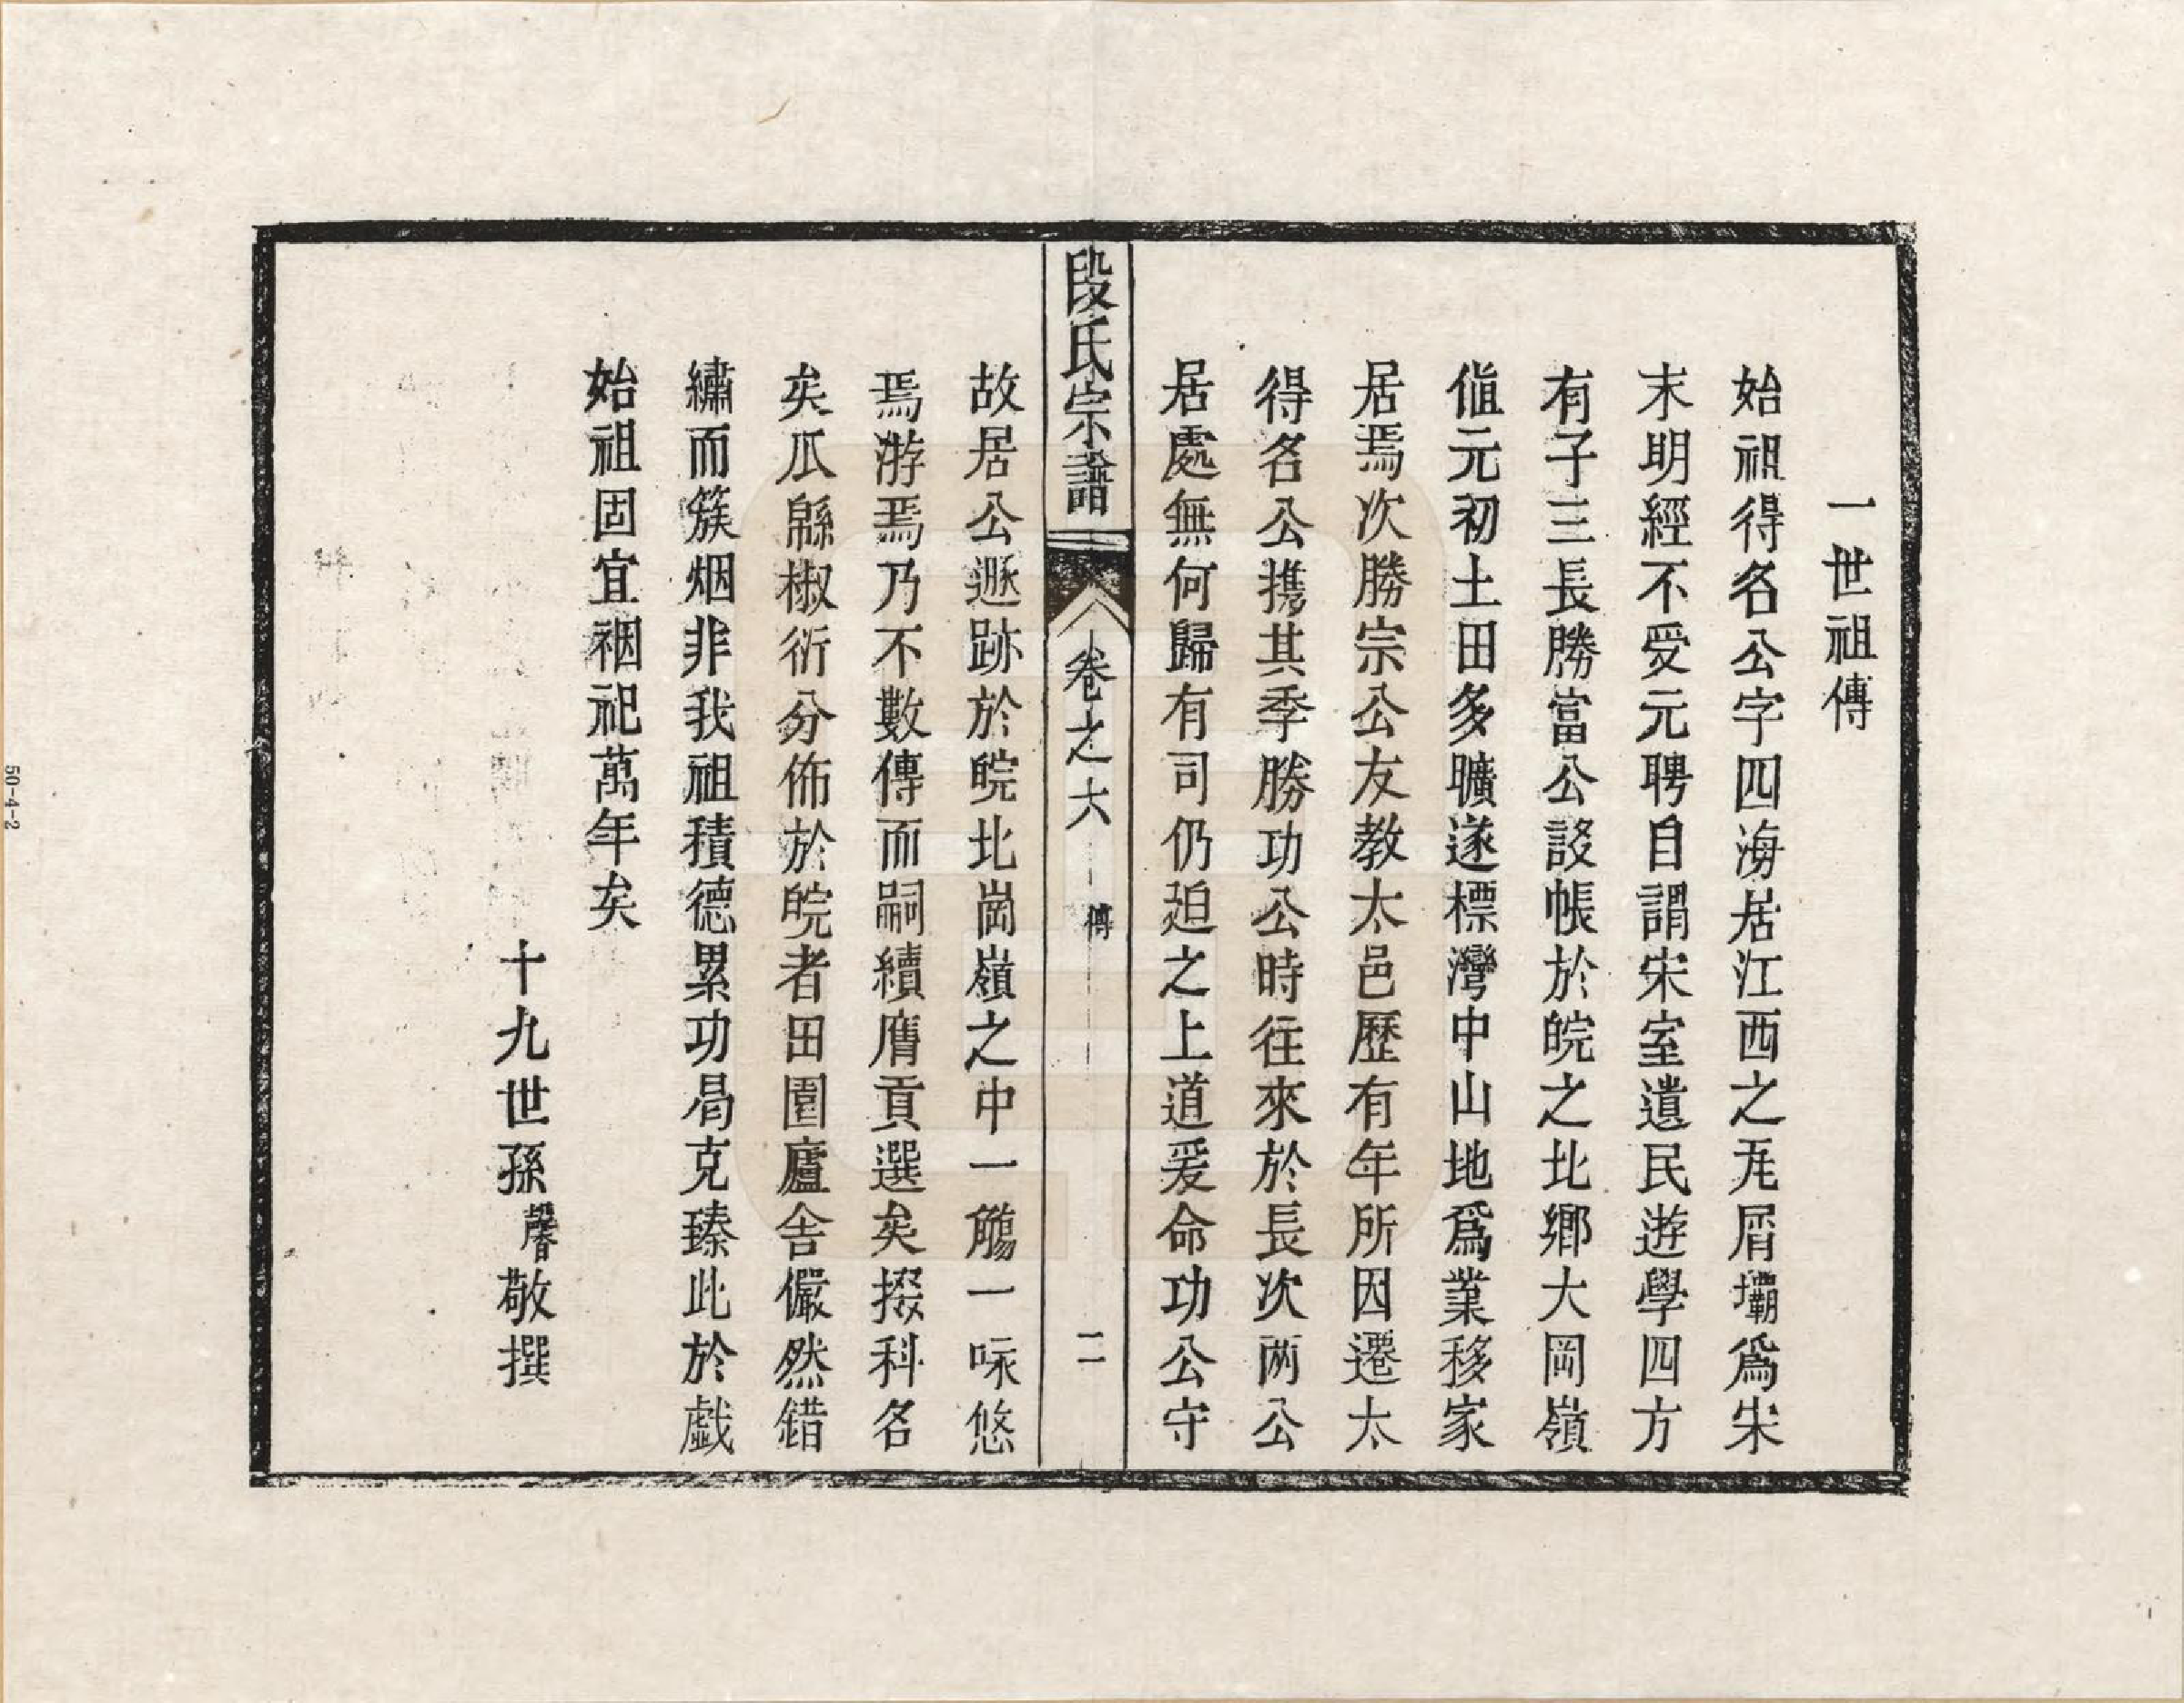 一世祖傳
始祖得名公字四海居江西之尾屑壩爲宋
末明經不受元聘自謂宋室遺民遊學四方
有子三長勝當公設帳於皖之北鄉大岡嶺
値元初土田多曠遂標灣中山地爲業移家
居焉次勝宗公友教太邑歷有年所因遷太
得名公携其季勝功公時往來於長次兩公
居處無何歸有司仍迫之上道爰命功公守
段氏宗譜 卷之六 傳 二
故居公遯跡於皖北崗嶺之中一觴一咏悠
焉游焉乃不數傳而嗣續膺貢選矣掇科名
矣瓜緜椒衍分佈於皖者田園廬舍儼然錯
繡而簇烟非我祖積德累功曷克臻此於戲
始祖固宜禋祀萬年矣
十九世孫馨敬撰
50-4-2